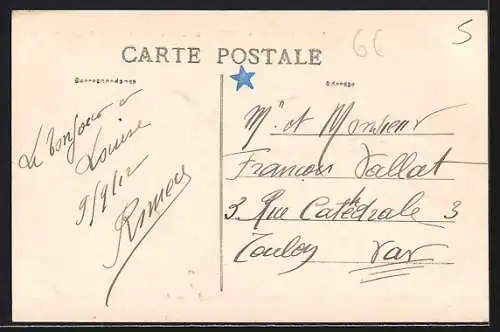 66
5
CARTE POSTALE
Correspondance
Adresse
Le bonjour a
Louise
9/9/12
Mr et Monsieur
François Vallat
3. Rue Catédrale 3
Toulon Var